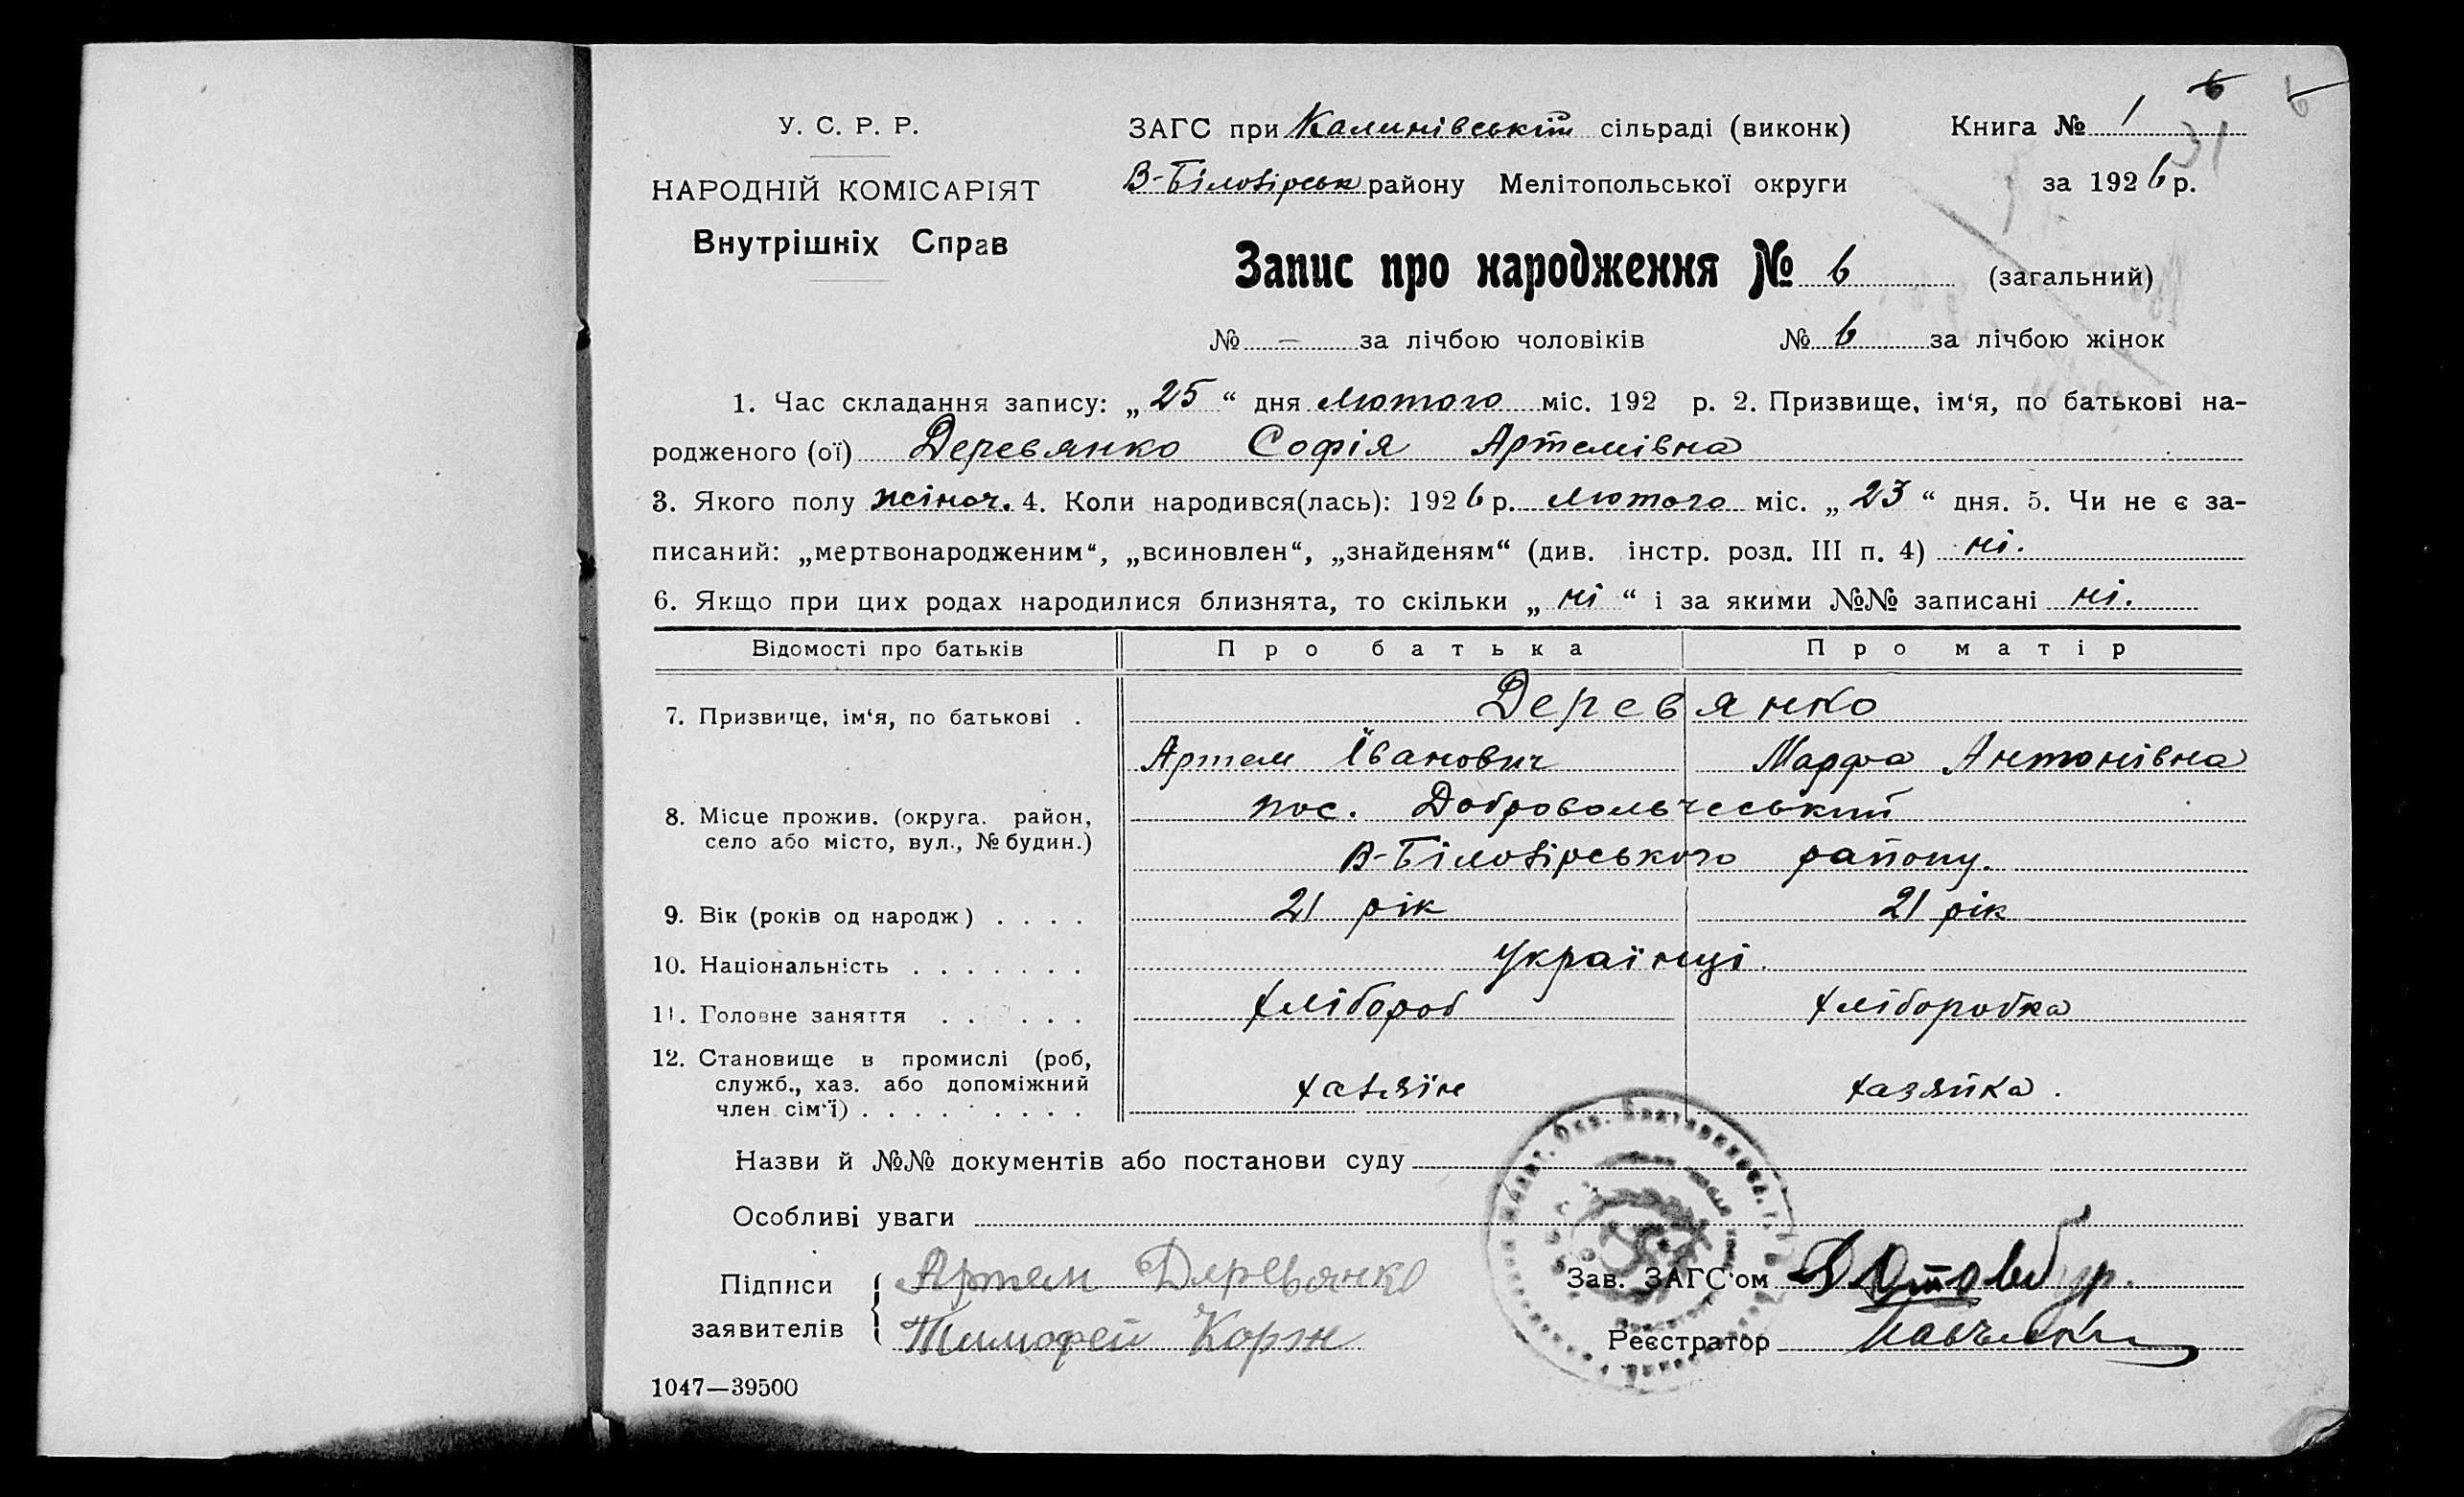 6 6
У. С. Р. Р.
ЗАГС при Калинівській сільраді (виконк) Книга № 1
31
НАРОДНІЙ КОМІСАРІЯТ
В-Білозірськ району Мелітопольської округи за 1926 р.
Внутрішніх Справ
Запис про народження № 6 (загальний)
№ – за лічбою чоловіків № 6 за лічбою жінок
1. Час складання запису: „25“ дня лютого міс. 192 р. 2. Призвище, ім‘я, по батькові на-
родженого (ої) Деревянко Софія Артемівна
3. Якого полу жіноч. 4. Коли народився(лась): 1926 р. лютого міс. „23“ дня. 5. Чи не є за-
писаний: „мертвонародженим“, „всиновлен“, „знайденям“ (див. інстр. розд. III п. 4) ні.
6. Якщо при цих родах народилися близнята, то скільки „ні“ і за якими №№ записані ні.
Відомості про батьків Про батька Про матір
7. Призвище, ім‘я, по батькові . Деревянко
Артем Іванович Марфа Антонівна
8. Місце прожив. (округа. район, пос. Добровольчеський
село або місто, вул., № будин.)
В-Білозірського району.
9. Вік (років од народж) . . . . 21 рік 21 рік
10. Національність . . . . . . . Українці.
11. Головне заняття . . . . . Хлібороб Хліборобка
12. Становище в промислі (роб,
служб., хаз. або допоміжний хазяїн хазяйка.
член сім‘ї) . . . . . . . . .
Назви й №№ документів або постанови суду
Особливі уваги
Підписи Артем Деревянко Зав. ЗАГС‘ом
заявителів Тимофей Корж Реєстратор
1047—39500